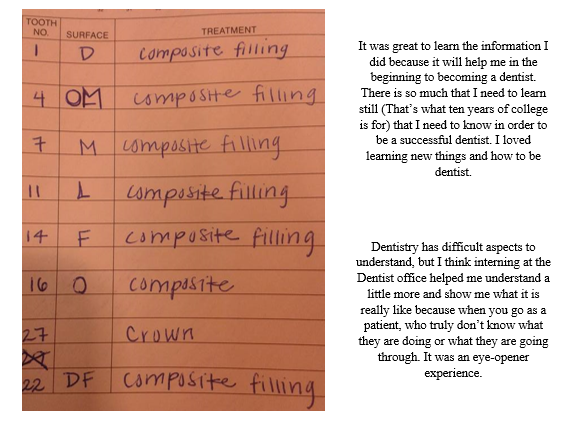 TOOTH NO. SURFACE TREATMENT
1 D composite filling
4 OM composite filling
7 M composite filling
11 L composite filling
14 F composite filling
16 O composite
27 Crown
22 DF composite filling
It was great to learn the information I
did because it will help me in the
beginning to becoming a dentist.
There is so much that I need to learn
still (That's what ten years of college
is for) that I need to know in order to
be a successful dentist. I loved
learning new things and how to be
dentist.
Dentistry has difficult aspects to
understand, but I think interning at the
Dentist office helped me understand a
little more and show me what it is
really like because when you go as a
patient, who truly don't know what
they are doing or what they are going
through. It was an eye-opener
experience.